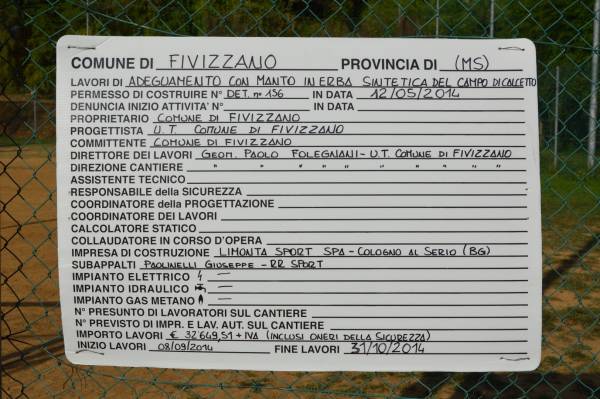 COMUNE DI FIVIZZANO PROVINCIA DI (MS)
LAVORI DI ADEGUAMENTO CON MANTO IN ERBA SINTETICA DEL CAMPO DI CALCETTO
PERMESSO DI COSTRUIRE N° DET. n° 156 IN DATA 12/05/2014
DENUNCIA INIZIO ATTIVITA' N° IN DATA
PROPRIETARIO COMUNE DI FIVIZZANO
PROGETTISTA U.T. COMUNE DI FIVIZZANO
COMMITTENTE COMUNE DI FIVIZZANO
DIRETTORE DEI LAVORI GEOM. PAOLO FOLEGNANI - U.T. COMUNE DI FIVIZZANO
DIREZIONE CANTIERE " " " " " " " "
ASSISTENTE TECNICO
RESPONSABILE della SICUREZZA
COORDINATORE della PROGETTAZIONE
COORDINATORE DEI LAVORI
CALCOLATORE STATICO
COLLAUDATORE IN CORSO D'OPERA
IMPRESA DI COSTRUZIONE LIMONTA SPORT SPA - COLOGNO AL SERIO (BG)
SUBAPPALTI PAOLINELLI GIUSEPPE - RR SPORT
IMPIANTO ELETTRICO —
IMPIANTO IDRAULICO —
IMPIANTO GAS METANO —
N° PRESUNTO DI LAVORATORI SUL CANTIERE
N° PREVISTO DI IMPR. E LAV. AUT. SUL CANTIERE
IMPORTO LAVORI € 32'649,51 + IVA (INCLUSI ONERI DELLA SICUREZZA)
INIZIO LAVORI 08/09/2014 FINE LAVORI 31/10/2014